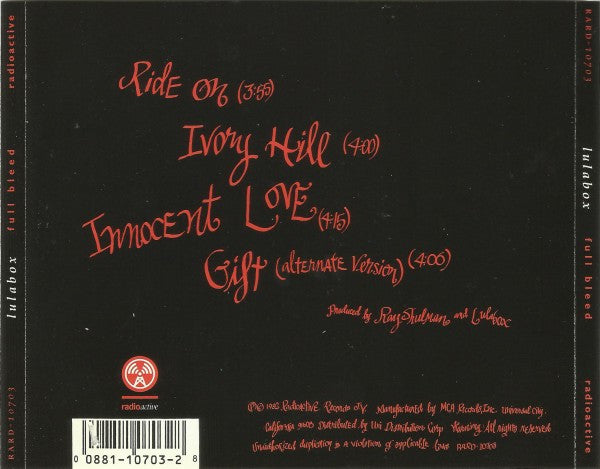 radioactive
full bleed
lulabox
RARD-10703
Ride On (3:55)
Ivory Hill (4:00)
Innocent Love (4:15)
Gift (alternate version) (4:06)
Produced by Ray Shulman and Lulabox
radioactive
0 0881-10703-2 8
Radioactive Records J.V. Manufactured by MCA Records, Inc. Universal City,
California distributed by Uni Distribution Corp. Warning: All rights reserved.
Unauthorized duplication is a violation of applicable laws RARD-10703
RARD-10703
lulabox
full bleed
radioactive